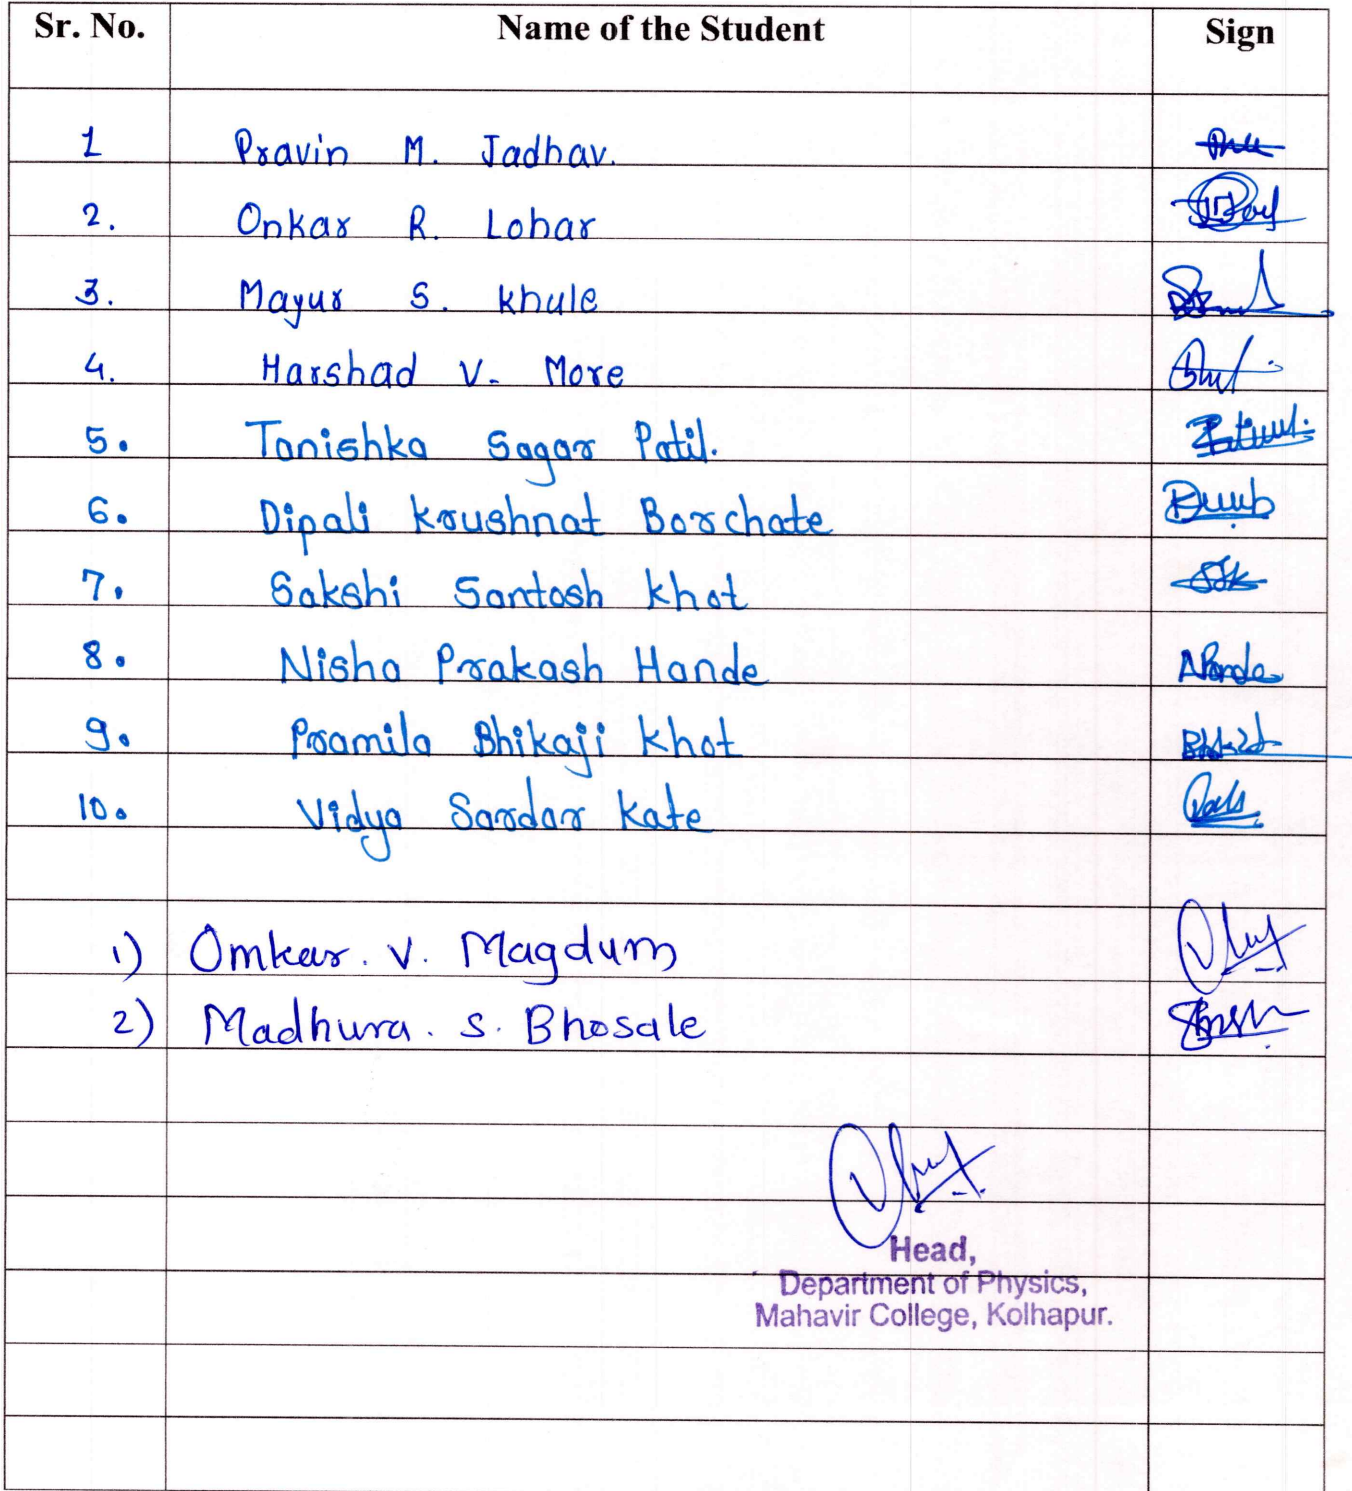 Sr. No. Name of the Student Sign
1 Pravin M. Jadhav.
2. Onkar R. Lohar
3. Mayur S. Khule
4. Harshad V. More
5. Tanishka Sagar Patil.
6. Dipali Krushnat Borchate
7. Sakshi Santosh Khot
8. Nisha Prakash Hande
9. Pramila Bhikaji Khot
10. Vidya Sardar Kate
1) Omkar. V. Magdum
2) Madhura. S. Bhosale
Head,
Department of Physics,
Mahavir College, Kolhapur.